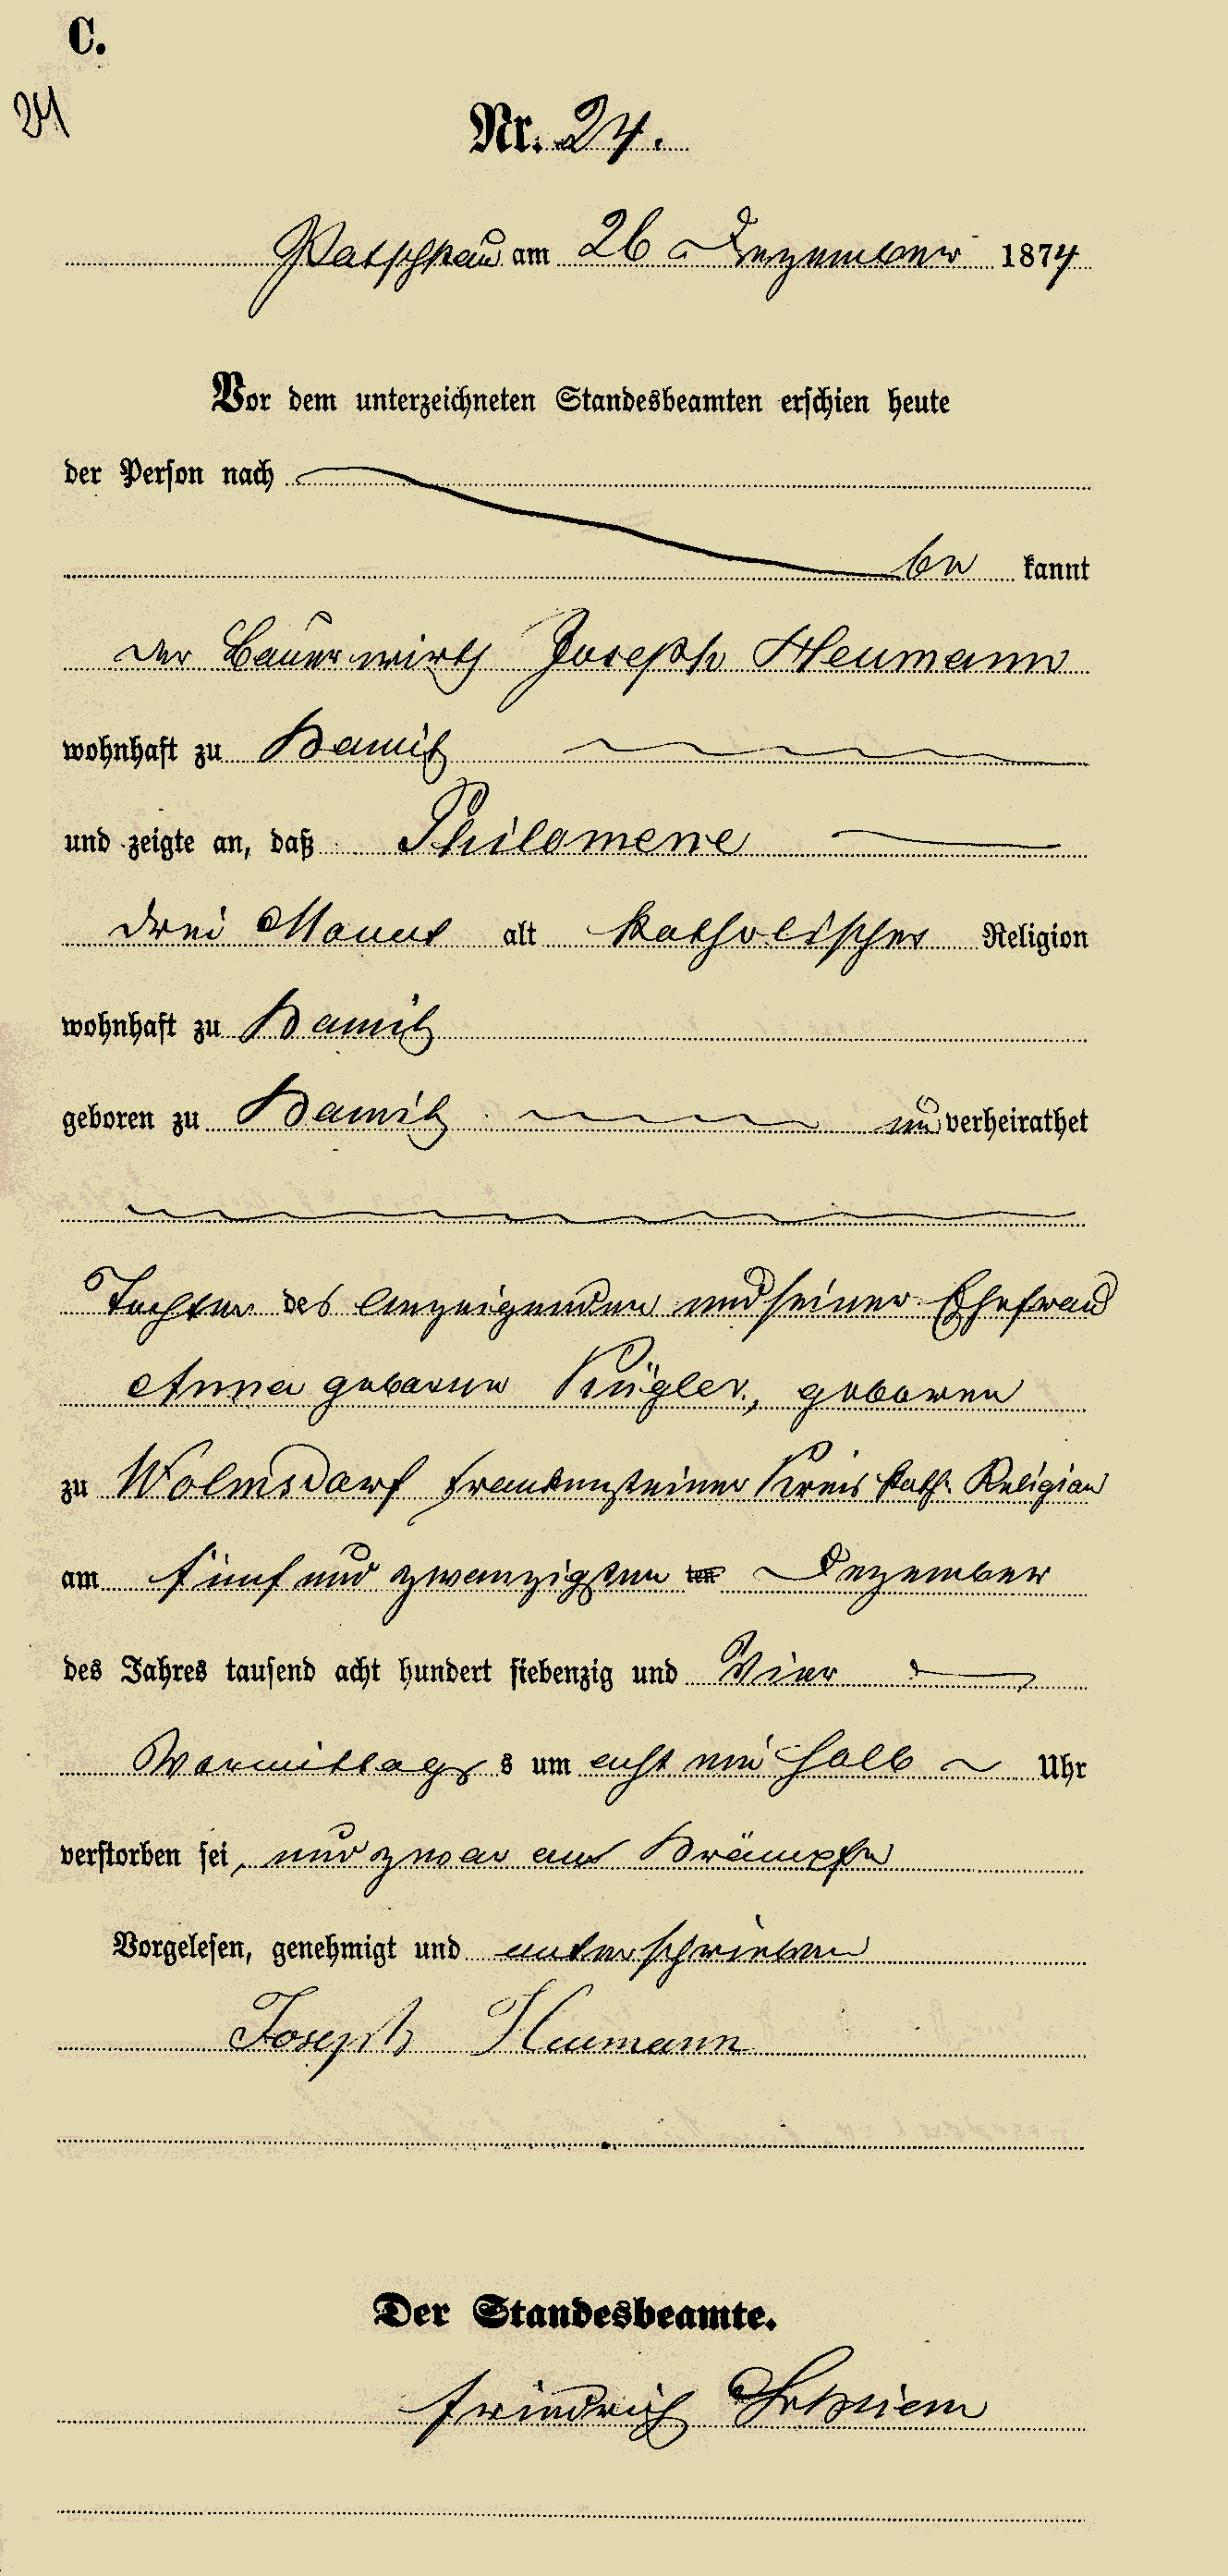 C.
24
Nr. 24.
Patschkau am 26 Dezember 1874
Vor dem unterzeichneten Standesbeamten erschien heute
der Person nach
be kannt
der Bauerwirth Joseph Heumann
wohnhaft zu Kamitz
und zeigte an, daß Philomene
drei Monat alt katholischer Religion
wohnhaft zu Kamitz
geboren zu Kamitz un verheirathet
Tochter des Anzeigenden und seiner Ehefrau
Anna geborene Kügler, geboren
zu Wolmsdorf Frankensteiner Kreis kath. Religion
am fünf und zwanzigsten ten Dezember
des Jahres tausend acht hundert siebenzig und Vier
Vormittags s um acht ein halb Uhr
verstorben sei, und zwar an Krämpfe
Vorgelesen, genehmigt und unterschrieben
Joseph Heumann
Der Standesbeamte.
Friedrich